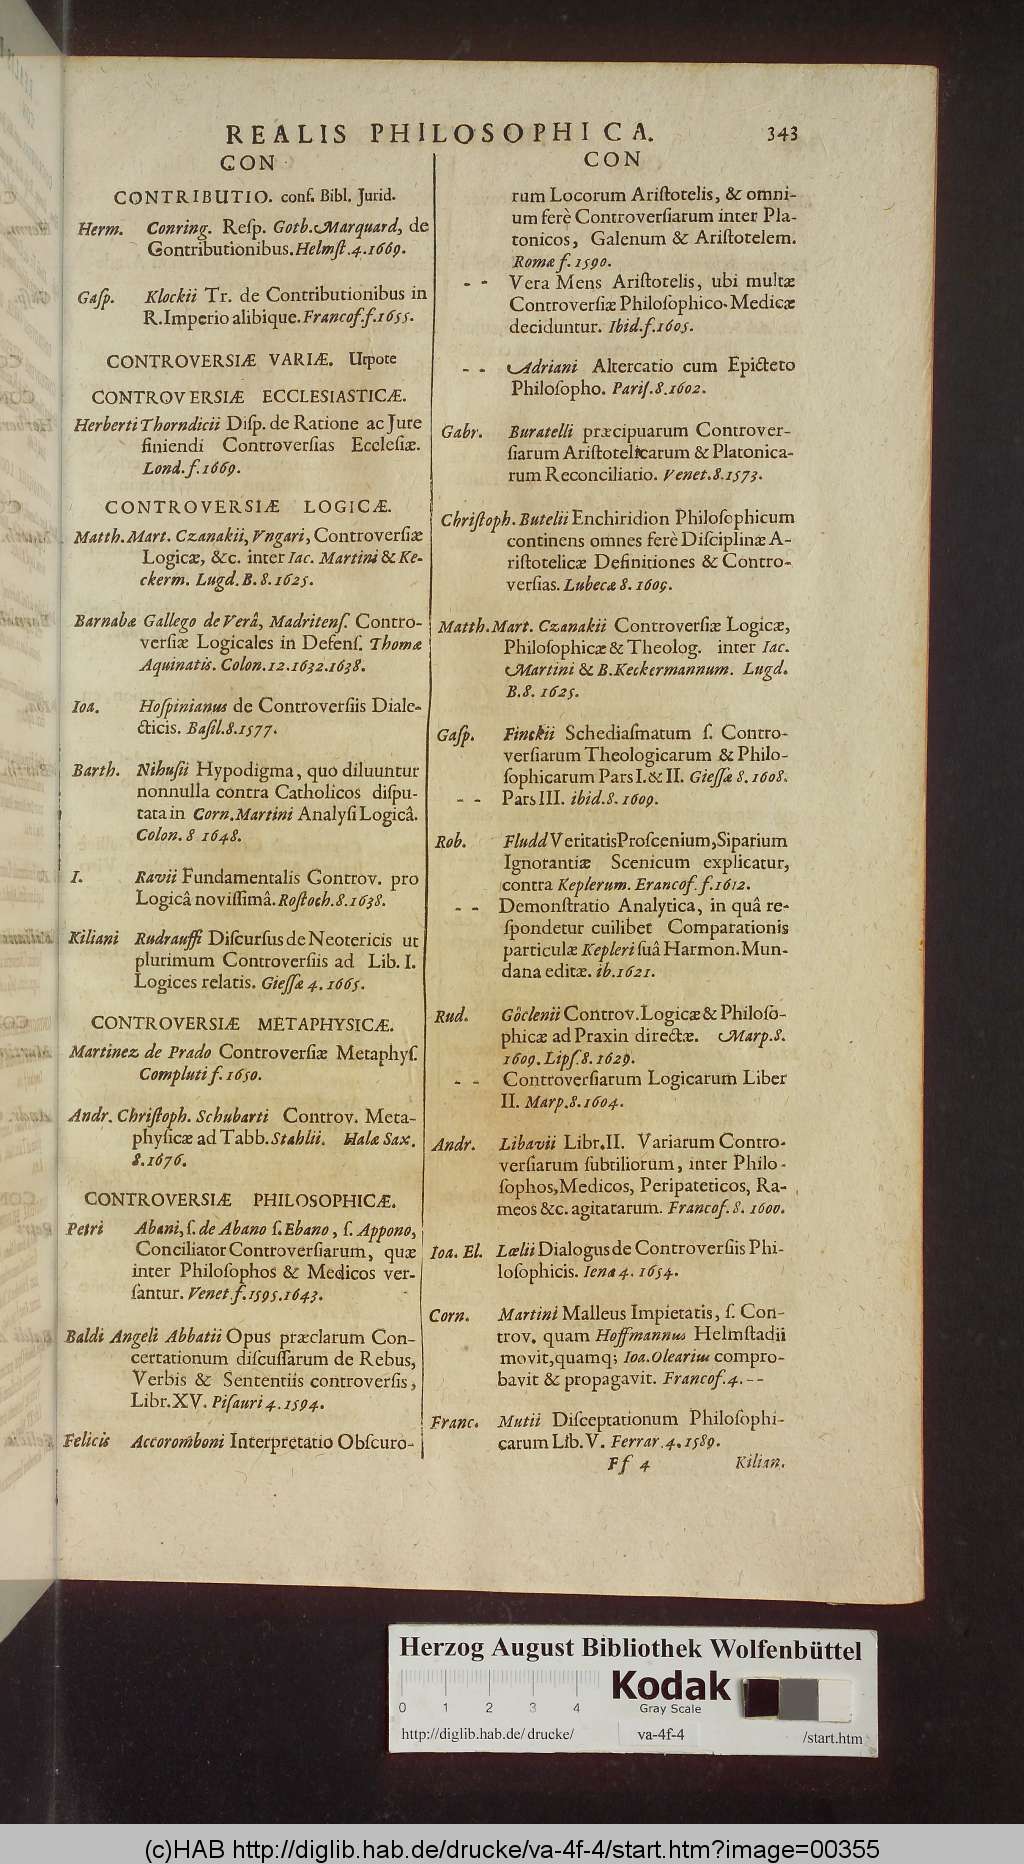 REALIS PHILOSOPHICA. 343
CON
CONTRIBUTIO. conf. Bibl. Jurid.
Herm. Conring. Reſp. Gotb. Marquard, de
Contributionibus. Helmſt. 4. 1669.
Gaſp. Klockii Tr. de Contributionibus in
R. Imperio alibique. Francof. f. 1655.
CONTROVERSIÆ VARIÆ. Utpote
CONTROVERSIÆ ECCLESIASTICÆ.
Herberti Thorndicii Diſp. de Ratione ac Jure
finiendi Controverſias Eccleſiæ.
Lond. f. 1669.
CONTROVERSIÆ LOGICÆ.
Matth. Mart. Czanakii, Vngari, Controverſiæ
Logicæ, &c. inter Iac. Martini & Ke-
ckerm. Lugd. B. 8. 1625.
Barnabæ Gallego de Verâ, Madritenſ. Contro-
verſiæ Logicales in Defenſ. Thomæ
Aquinatis. Colon. 12. 1632. 1638.
Ioa. Hoſpinianus de Controverſiis Diale-
cticis. Baſil. 8. 1577.
Barth. Nihuſii Hypodigma, quo diluuntur
nonnulla contra Catholicos diſpu-
tata in Corn. Martini Analyſi Logicâ.
Colon. 8 1648.
I. Ravii Fundamentalis Controv. pro
Logicâ noviſſimâ. Roſtoch. 8. 1638.
Kiliani Rudrauffi Diſcurſus de Neotericis ut
plurimum Controverſiis ad Lib. I.
Logices relatis. Gieſſæ 4. 1665.
CONTROVERSIÆ METAPHYSICÆ.
Martinez de Prado Controverſiæ Metaphyſ.
Compluti f. 1650.
Andr. Chriſtoph. Schubarti Controv. Meta-
phyſicæ ad Tabb. Stahlii. Halæ Sax.
8. 1676.
CONTROVERSIÆ PHILOSOPHICÆ.
Petri Abani, ſ. de Abano ſ. Ebano, ſ. Appono,
Conciliator Controverſiarum, quæ
inter Philoſophos & Medicos ver-
ſantur. Venet. f. 1595. 1643.
Baldi Angeli Abbatii Opus præclarum Con-
certationum diſcuſſarum de Rebus,
Verbis & Sententiis controverſis,
Libr. XV. Piſauri 4. 1594.
Felicis Accoromboni Interpretatio Obſcuro-
CON
rum Locorum Ariſtotelis, & omni-
um ferè Controverſiarum inter Pla-
tonicos, Galenum & Ariſtotelem.
Romæ f. 1590.
- - Vera Mens Ariſtotelis, ubi multæ
Controverſiæ Philoſophico-Medicæ
deciduntur. Ibid. f. 1605.
- - Adriani Altercatio cum Epicteto
Philoſopho. Pariſ. 8. 1602.
Gabr. Buratelli præcipuarum Controver-
ſiarum Ariſtotelicarum & Platonica-
rum Reconciliatio. Venet. 8. 1573.
Chriſtoph. Butelii Enchiridion Philoſophicum
continens omnes ferè Diſciplinæ A-
riſtotelicæ Definitiones & Contro-
verſias. Lubecæ 8. 1609.
Matth. Mart. Czanakii Controverſiæ Logicæ,
Philoſophicæ & Theolog. inter Iac.
Martini & B. Keckermannum. Lugd.
B. 8. 1625.
Gaſp. Finckii Schediaſmatum ſ. Contro-
verſiarum Theologicarum & Philo-
ſophicarum Pars I. & II. Gieſſæ 8. 1608.
- - Pars III. ibid. 8. 1609.
Rob. Fludd Veritatis Proſcenium, Siparium
Ignorantiæ Scenicum explicatur,
contra Keplerum. Erancof. f. 1612.
- - Demonſtratio Analytica, in quâ re-
ſpondetur cuilibet Comparationis
particulæ Kepleri ſuâ Harmon. Mun-
dana editæ. ib. 1621.
Rud. Göclenii Controv. Logicæ & Philoſo-
phicæ ad Praxin directæ. Marp. 8.
1609. Lipſ. 8. 1629.
- - Controverſiarum Logicarum Liber
II. Marp. 8. 1604.
Andr. Libavii Libr. II. Variarum Contro-
verſiarum ſubtiliorum, inter Philo-
ſophos, Medicos, Peripateticos, Ra-
meos &c. agitatarum. Francof. 8. 1600.
Ioa. El. Lælii Dialogus de Controverſiis Phi-
loſophicis. Iena 4. 1654.
Corn. Martini Malleus Impietatis, ſ. Con-
trov. quam Hoffmannus Helmſtadii
movit, quamq; Ioa. Olearius compro-
bavit & propagavit. Francof. 4. - -
Franc. Mutii Diſceptationum Philoſophi-
carum Lib. V. Ferrar. 4. 1589.
Ff 4 Kilian.
Herzog August Bibliothek Wolfenbüttel
0 1 2 3 4
Kodak
Gray Scale
http://diglib.hab.de/drucke/ va-4f-4 /start.htm
(c)HAB http://diglib.hab.de/drucke/va-4f-4/start.htm?image=00355